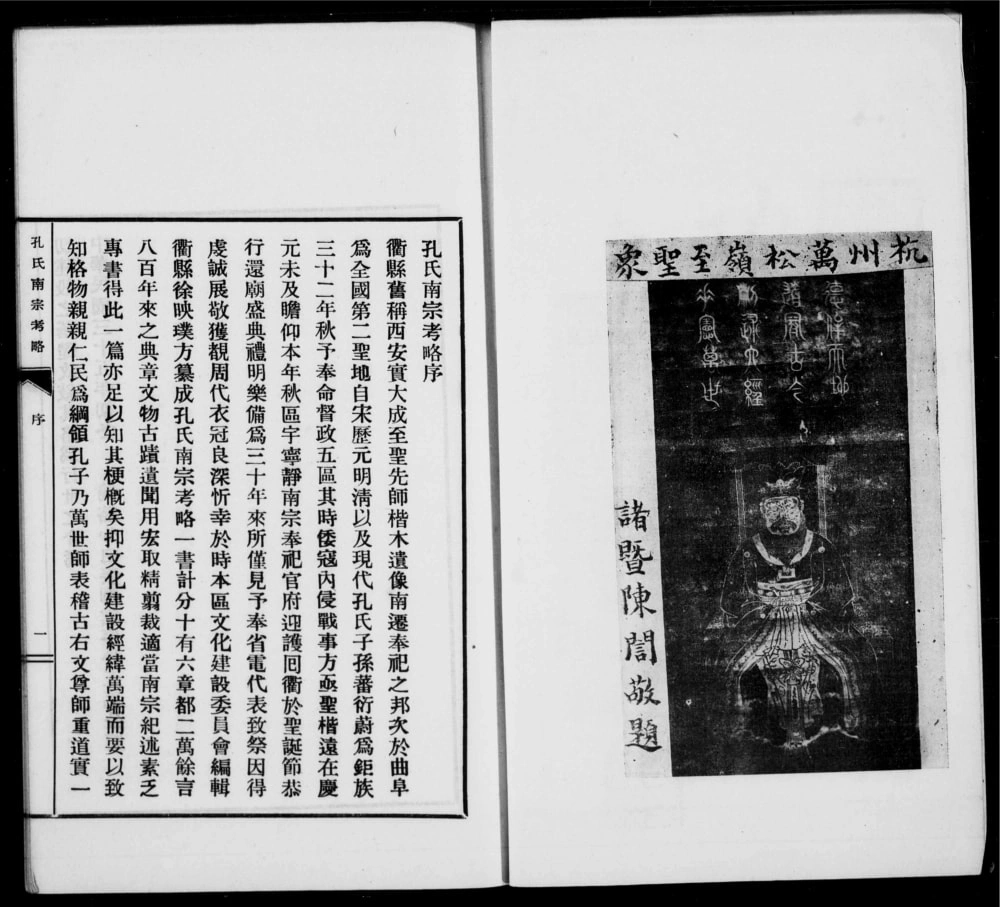 杭州萬松嶺至聖象
德侔天地
道冠古今
刪述六經
垂憲萬世
諸暨陳誾敬題
孔氏南宗考略序
衢縣舊稱西安實大成至聖先師楷木遺像南遷奉祀之邦次於曲阜
爲全國第二聖地自宋歷元明清以及現代孔氏子孫蕃衍蔚爲鉅族
三十二年秋予奉命督政五區其時倭寇內侵戰事方亟聖楷遠在慶
元未及瞻仰本年秋區宇寧靜南宗奉祀官府迎護囘衢於聖誕節恭
行還廟盛典禮明樂備爲三十年來所僅見予奉省電代表致祭因得
虔誠展敬獲覩周代衣冠良深忻幸於時本區文化建設委員會編輯
衢縣徐映璞方纂成孔氏南宗考略一書計分十有六章都二萬餘言
八百年來之典章文物古蹟遺聞用宏取精翦裁適當南宗紀述素乏
專書得此一篇亦足以知其梗槪矣抑文化建設經緯萬端而要以致
知格物親親仁民爲綱領孔子乃萬世師表稽古右文尊師重道實一
孔氏南宗考略
序
一